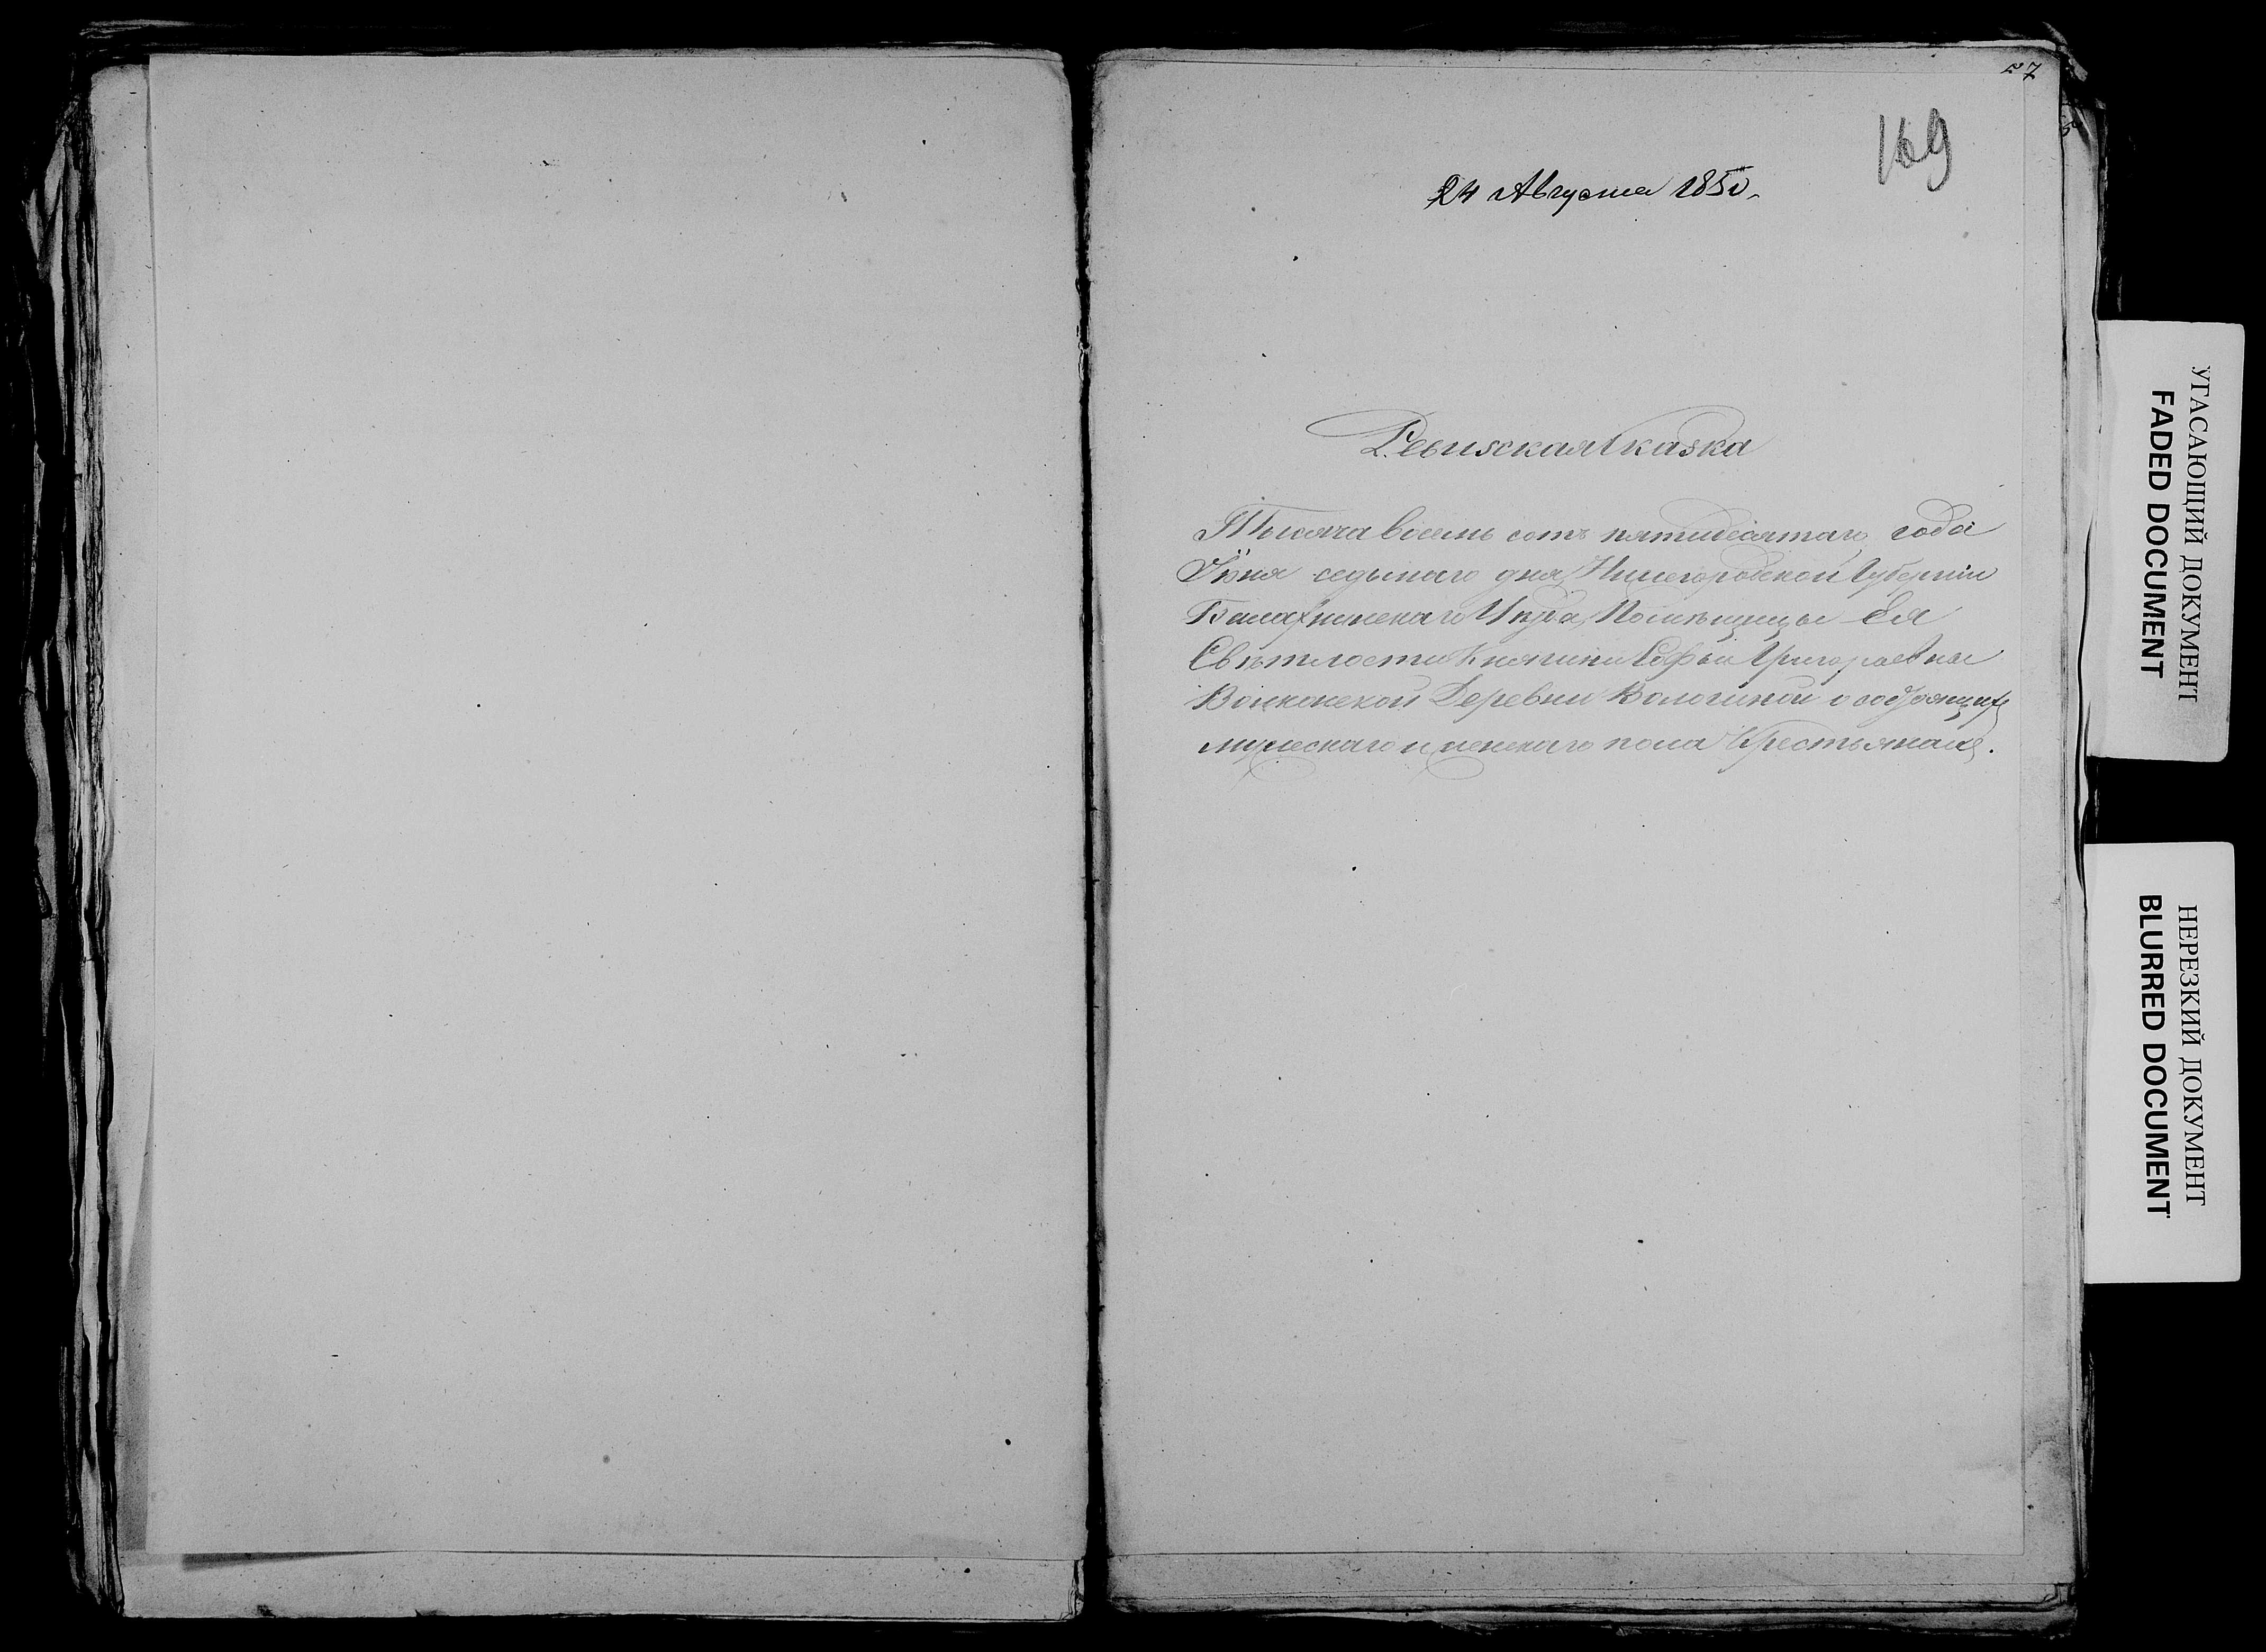 27
169
24 Августа 1850.
Ревизская Сказка
Тысяча восемь сотъ пятидесятаго года
Іюня седьмаго дня, Нижегородской Губерніи
Балахнинскаго Уѣзда, Помѣщицы Ея
Свѣтлости Княгини Софьи Григорьевны
Волконской Деревни о состоящихъ
мужескаго и женскаго пола Крестьянахъ.
УГАСАЮЩИЙ ДОКУМЕНТ
FADED DOCUMENT
НЕРЕЗКИЙ ДОКУМЕНТ
BLURRED DOCUMENT